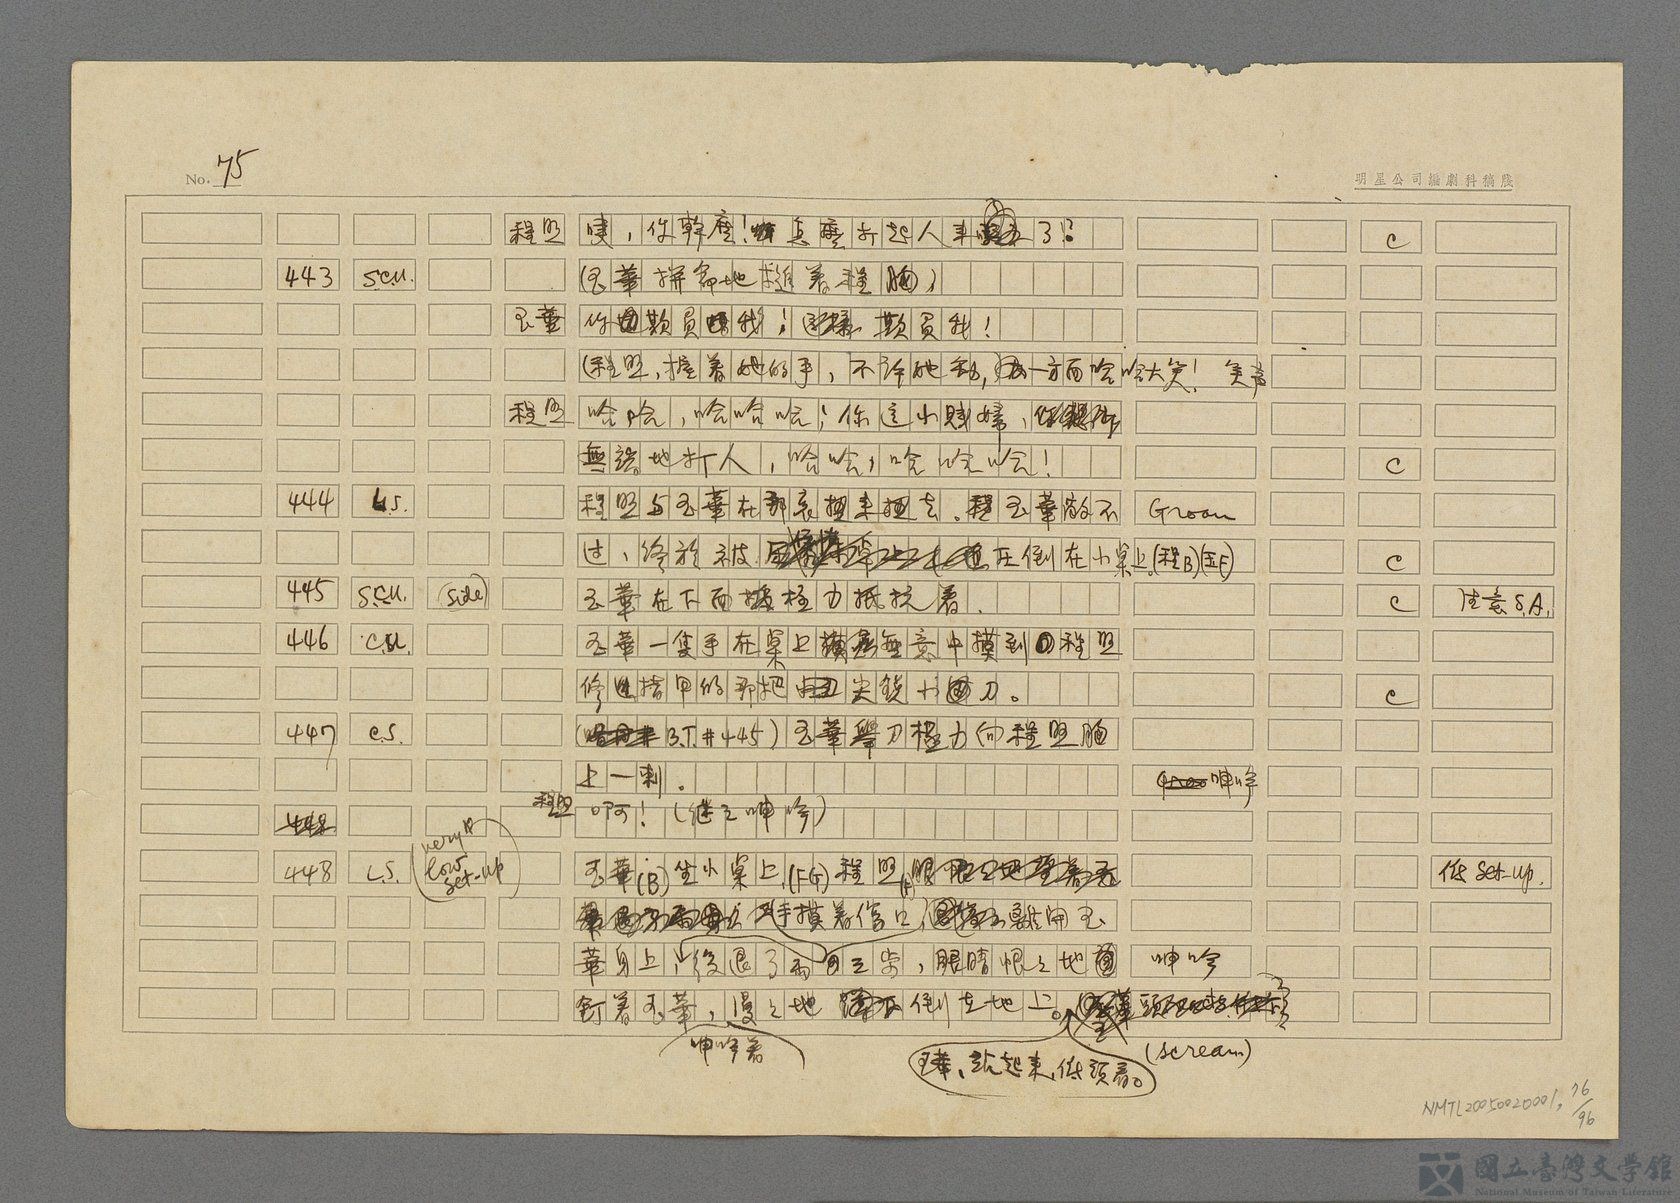 No. 75
明星公司編劇科稿牋
程照 嘆，你幹麼！怎麼打起人來了！？ C
443 S.C.U. (玉華拼命地搥着程胸)
玉華 你欺負我！欺負我！
(程照，握着她的手，不許她動，一方面哈哈大笑！笑着
程照 哈哈，哈哈哈！你這小賤婦，
無端地打人，哈哈，哈哈哈！ C
444 L.S. 程照与玉華在那裏扭來扭去。程玉華敵不 Groan
过，終於被 压倒在小桌上(程B)(玉F) C
445 S.C.U. (side) 玉華在下面極力抵抗着。 C 注意S.A.
446 C.U. 玉華一隻手在桌上無意中摸到程照
修指甲的那把尖銳小刀。 C
447 C.S. (B.T.#445) 玉華舉刀極力向程照胸
上一刺。 呻吟
程照 啊！(継之呻吟)
448
448 L.S. (very low set-up) 玉華(B)坐小桌上，(FG)程照 低 set-up.
手摸着傷口，離開玉
華身上，後退了兩三步，眼睛恨之地 呻吟
釘着玉華，漫之地 倒在地上。
呻吟着
玉華，站起來，低頭看。
(scream)
NMTL20050020001, 76/96
國立臺灣文學館
National Museum of Taiwan Literature